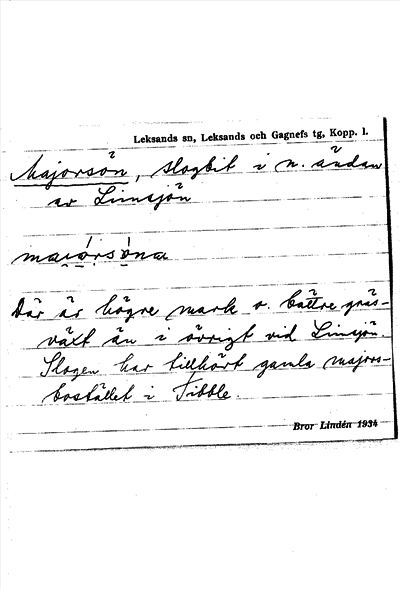 Leksands sn, Leksands och Gagnefs tg, Kopp. l.
Majorsön, slogbit i n. ändan
av Limsjön
maiórsǫ́na
Där är högre mark o. bättre gräs-
växt än i övrigt vid Limsjön.
Slogen har tillhört gamla majors-
bostället i Tibble.
Bror Lindén 1934